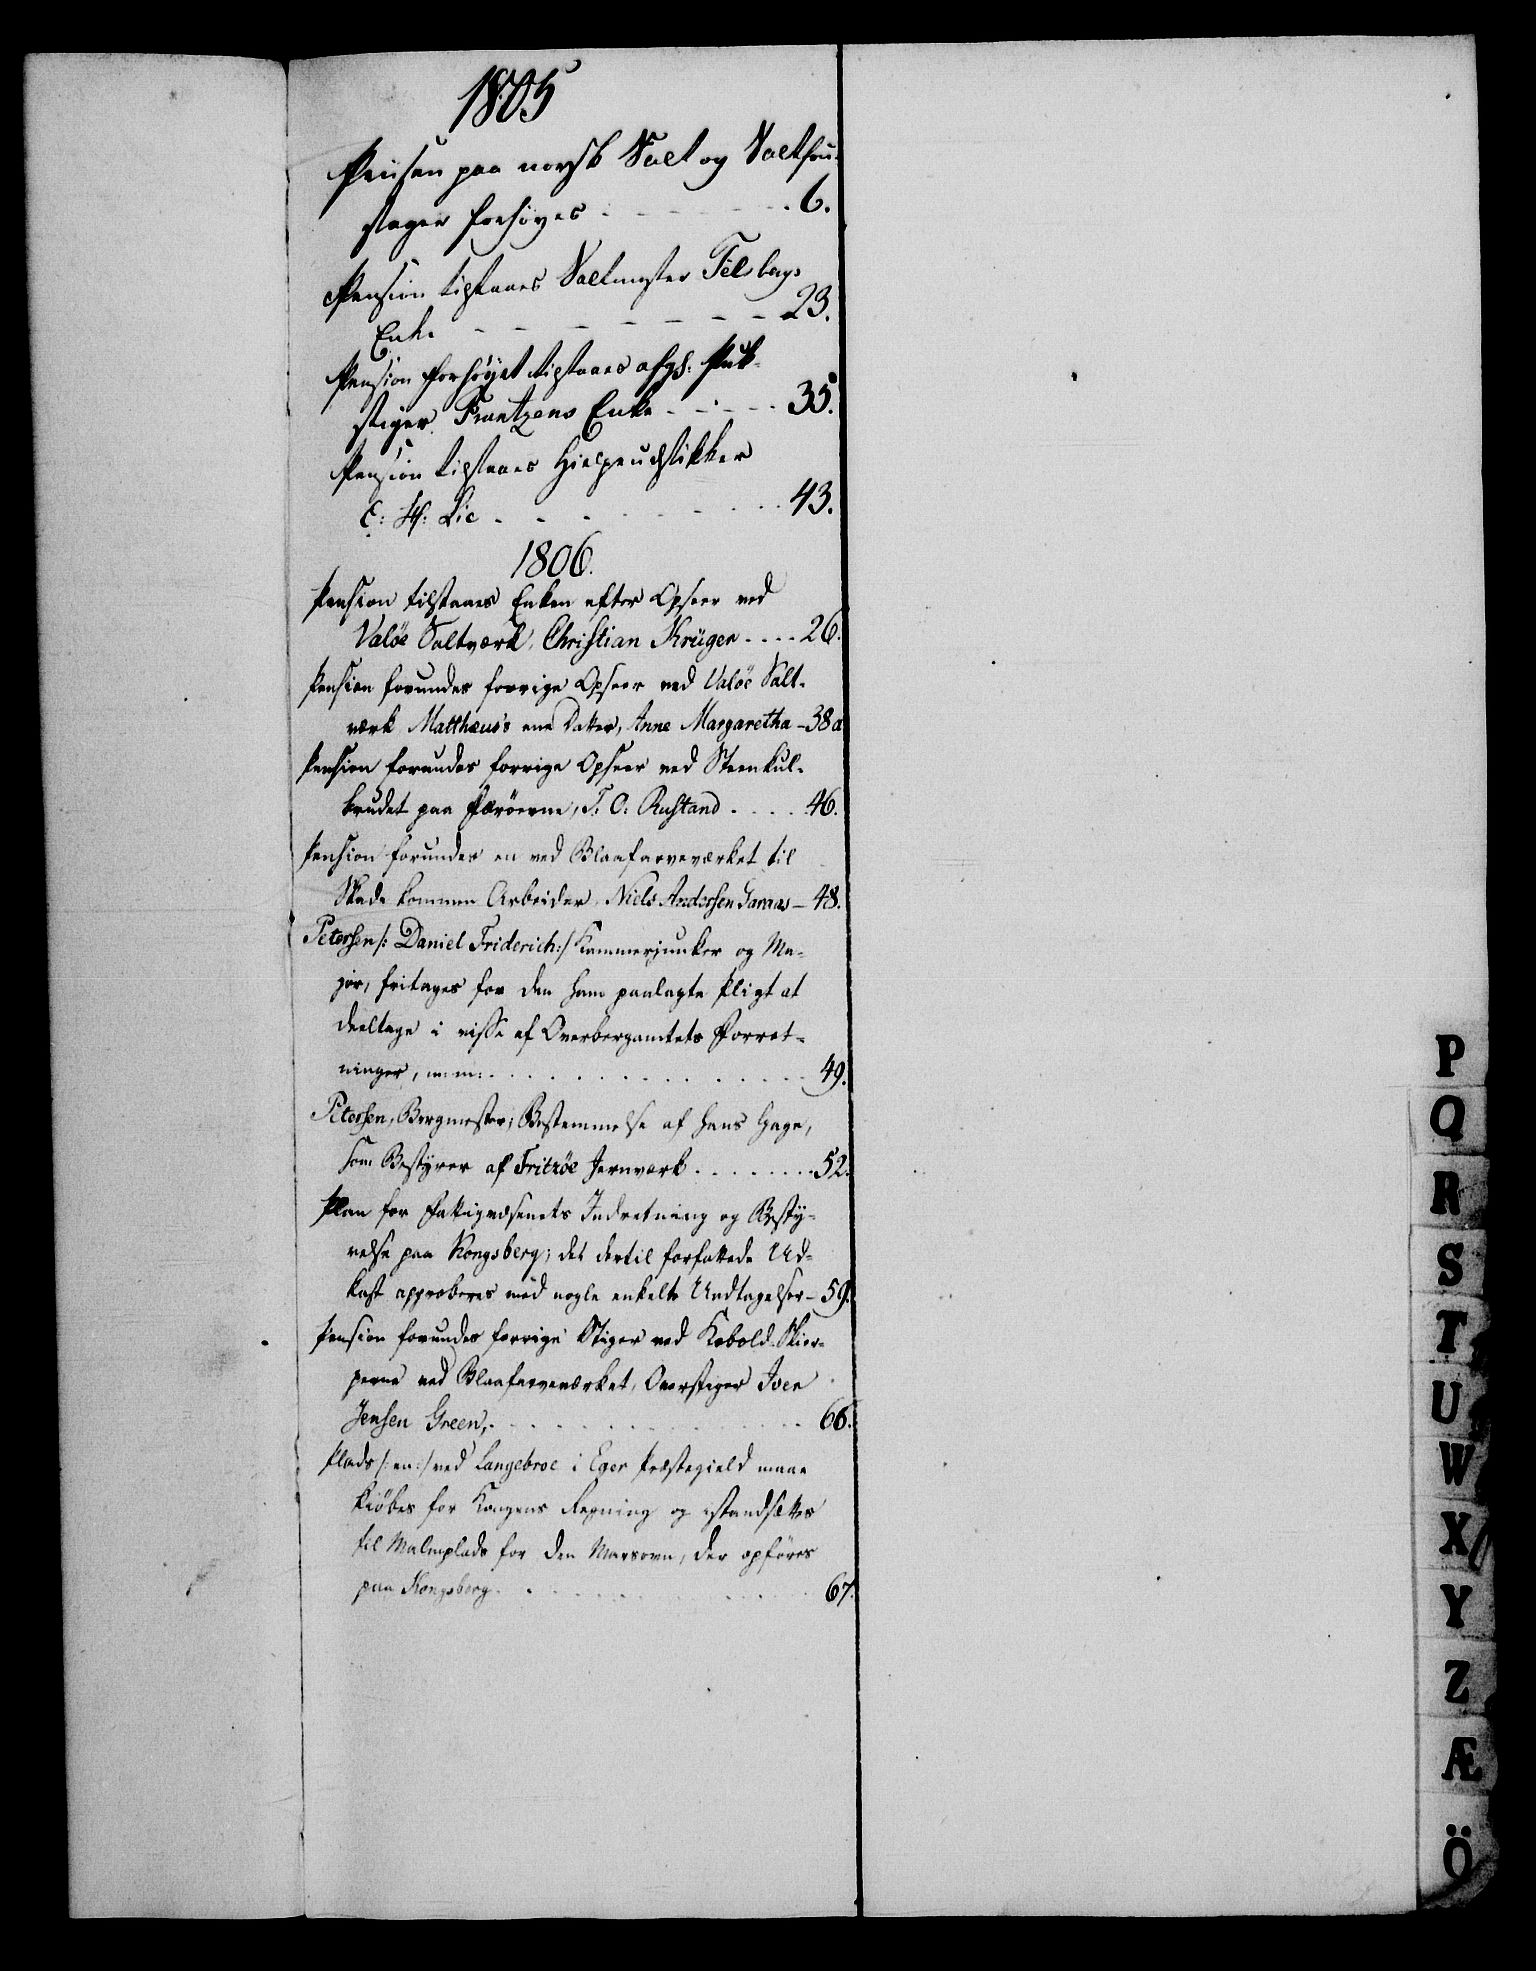 1805
Priisen paa norsk Salt og Saltfru-
stager forhöyes - - - - - 6.
Pension tilstaaes Saltmester Tilsbergs
Enke - - - - - - - 23.
Pension forhöyet tilstaaes afgh: Puk-
stiger Frantzens Enke - - - - 35.
Pension tilstaaes Hielpeudstikker
E: H: Lie - - - - - - 43.
1806.
Pension tilstaaes Enken efter Opseer ved
Valöe Saltværk, Christian Krüger . . . . 26.
Pension forundes forrige Opseer ved Valöe Salt-
værk Matthæus's ene Datter, Anne Margaretha - 38a
Pension forundes forrige Opseer ved Steenkul-
brudet paa Færöerne, T. O: Rustand . . . . 46.
Pension forundes en ved Blaafarveværket til
Skade kommen Arbeider, Niels Andersen Garaas - 48.
Petersen /: Daniel Friderich :/ Kammerjunker og Ma-
jor, fritages for den ham paalagte Pligt at
deeltage i visse af Overbergamtets Forret-
ninger, m: m: . . . . . . . . . . 49.
Petersen, Bergmester; Bestemmelse af hans Gage,
som Bestyrer af Fritzöe Jernværk . . . . . . . 52.
Plan for Fattigvæsenets Indretning og Besty-
relse paa Kongsberg; det dertil forfattede Ud-
kast approberes med nogle enkelte Undtagelser - 59.
Pension forundes forrige Stiger ved Kobold-Skier-
pene ved Blaafarveværket, Overstiger Iver
Jensen Green, . . . . . . . . . . 66.
Plads /: en :/ ved Langebroe i Eger Præstegield maae
kiöbes for Kongens Regning og istandsættes
til Malmplads for den Marsovn, der opföres
paa Kongsberg . . . . . . . . . . 67.
P
Q
R
S
T
U
W
X
Y
Z
Æ
Ö